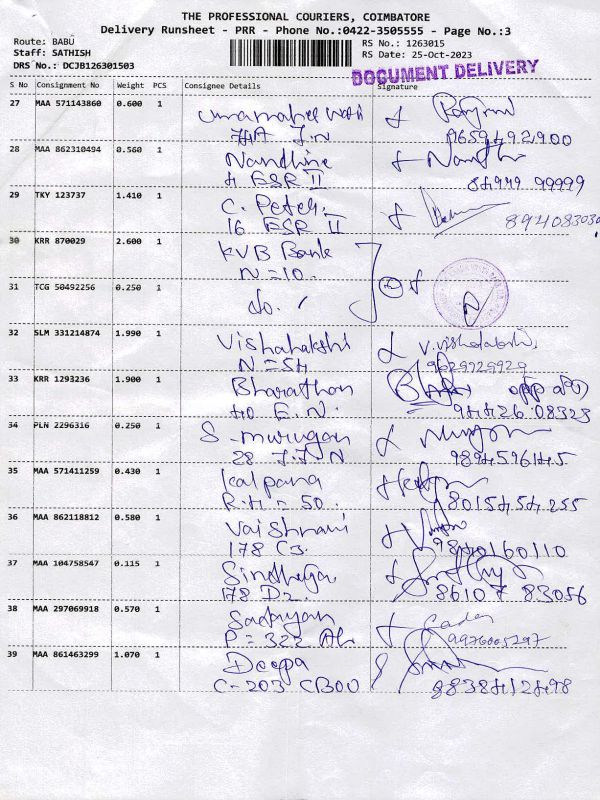 THE PROFESSIONAL COURIERS, COIMBATORE
Delivery Runsheet - PRR - Phone No.:0422-3505555 - Page No.:3
Route: BABU
Staff: SATHISH
DRS No.: DCJB126301503
RS No.: 1263015
RS Date: 25-Oct-2023
DOCUMENT DELIVERY
S No Consignment No Weight PCS Consignee Details Signature
27 MAA 571143860 0.600 1
9659492900
28 MAA 862310494 0.560 1 Nandhine
4 ESR II 84999 99999
29 TKY 123737 1.410 1 C. Peter
16 ESR II
30 KRR 870029 2.600 1 KVB Bank
N = 10.
31 TCG 50492256 0.250 1 do.
32 SLM 331214874 1.990 1 Vishahakshi
N = 54 9629729929
33 KRR 1293236 1.900 1 Bharathan
40 E.N. 94426 08323
34 PLN 2296316 0.250 1 S. murugan
28 J.J.N 9894596145
35 MAA 571411259 0.430 1 Kalpana
R.H = 50. 8015454255
36 MAA 862118812 0.580 1 Vaishnavi
178 C3. 9840160110
37 MAA 104758547 0.115 1 Sindhuja
178 D2 86107 83056
38 MAA 297069918 0.570 1
P = 322 9976005297
39 MAA 861463299 1.070 1 Deepa
C-203 CBOO 8838412498